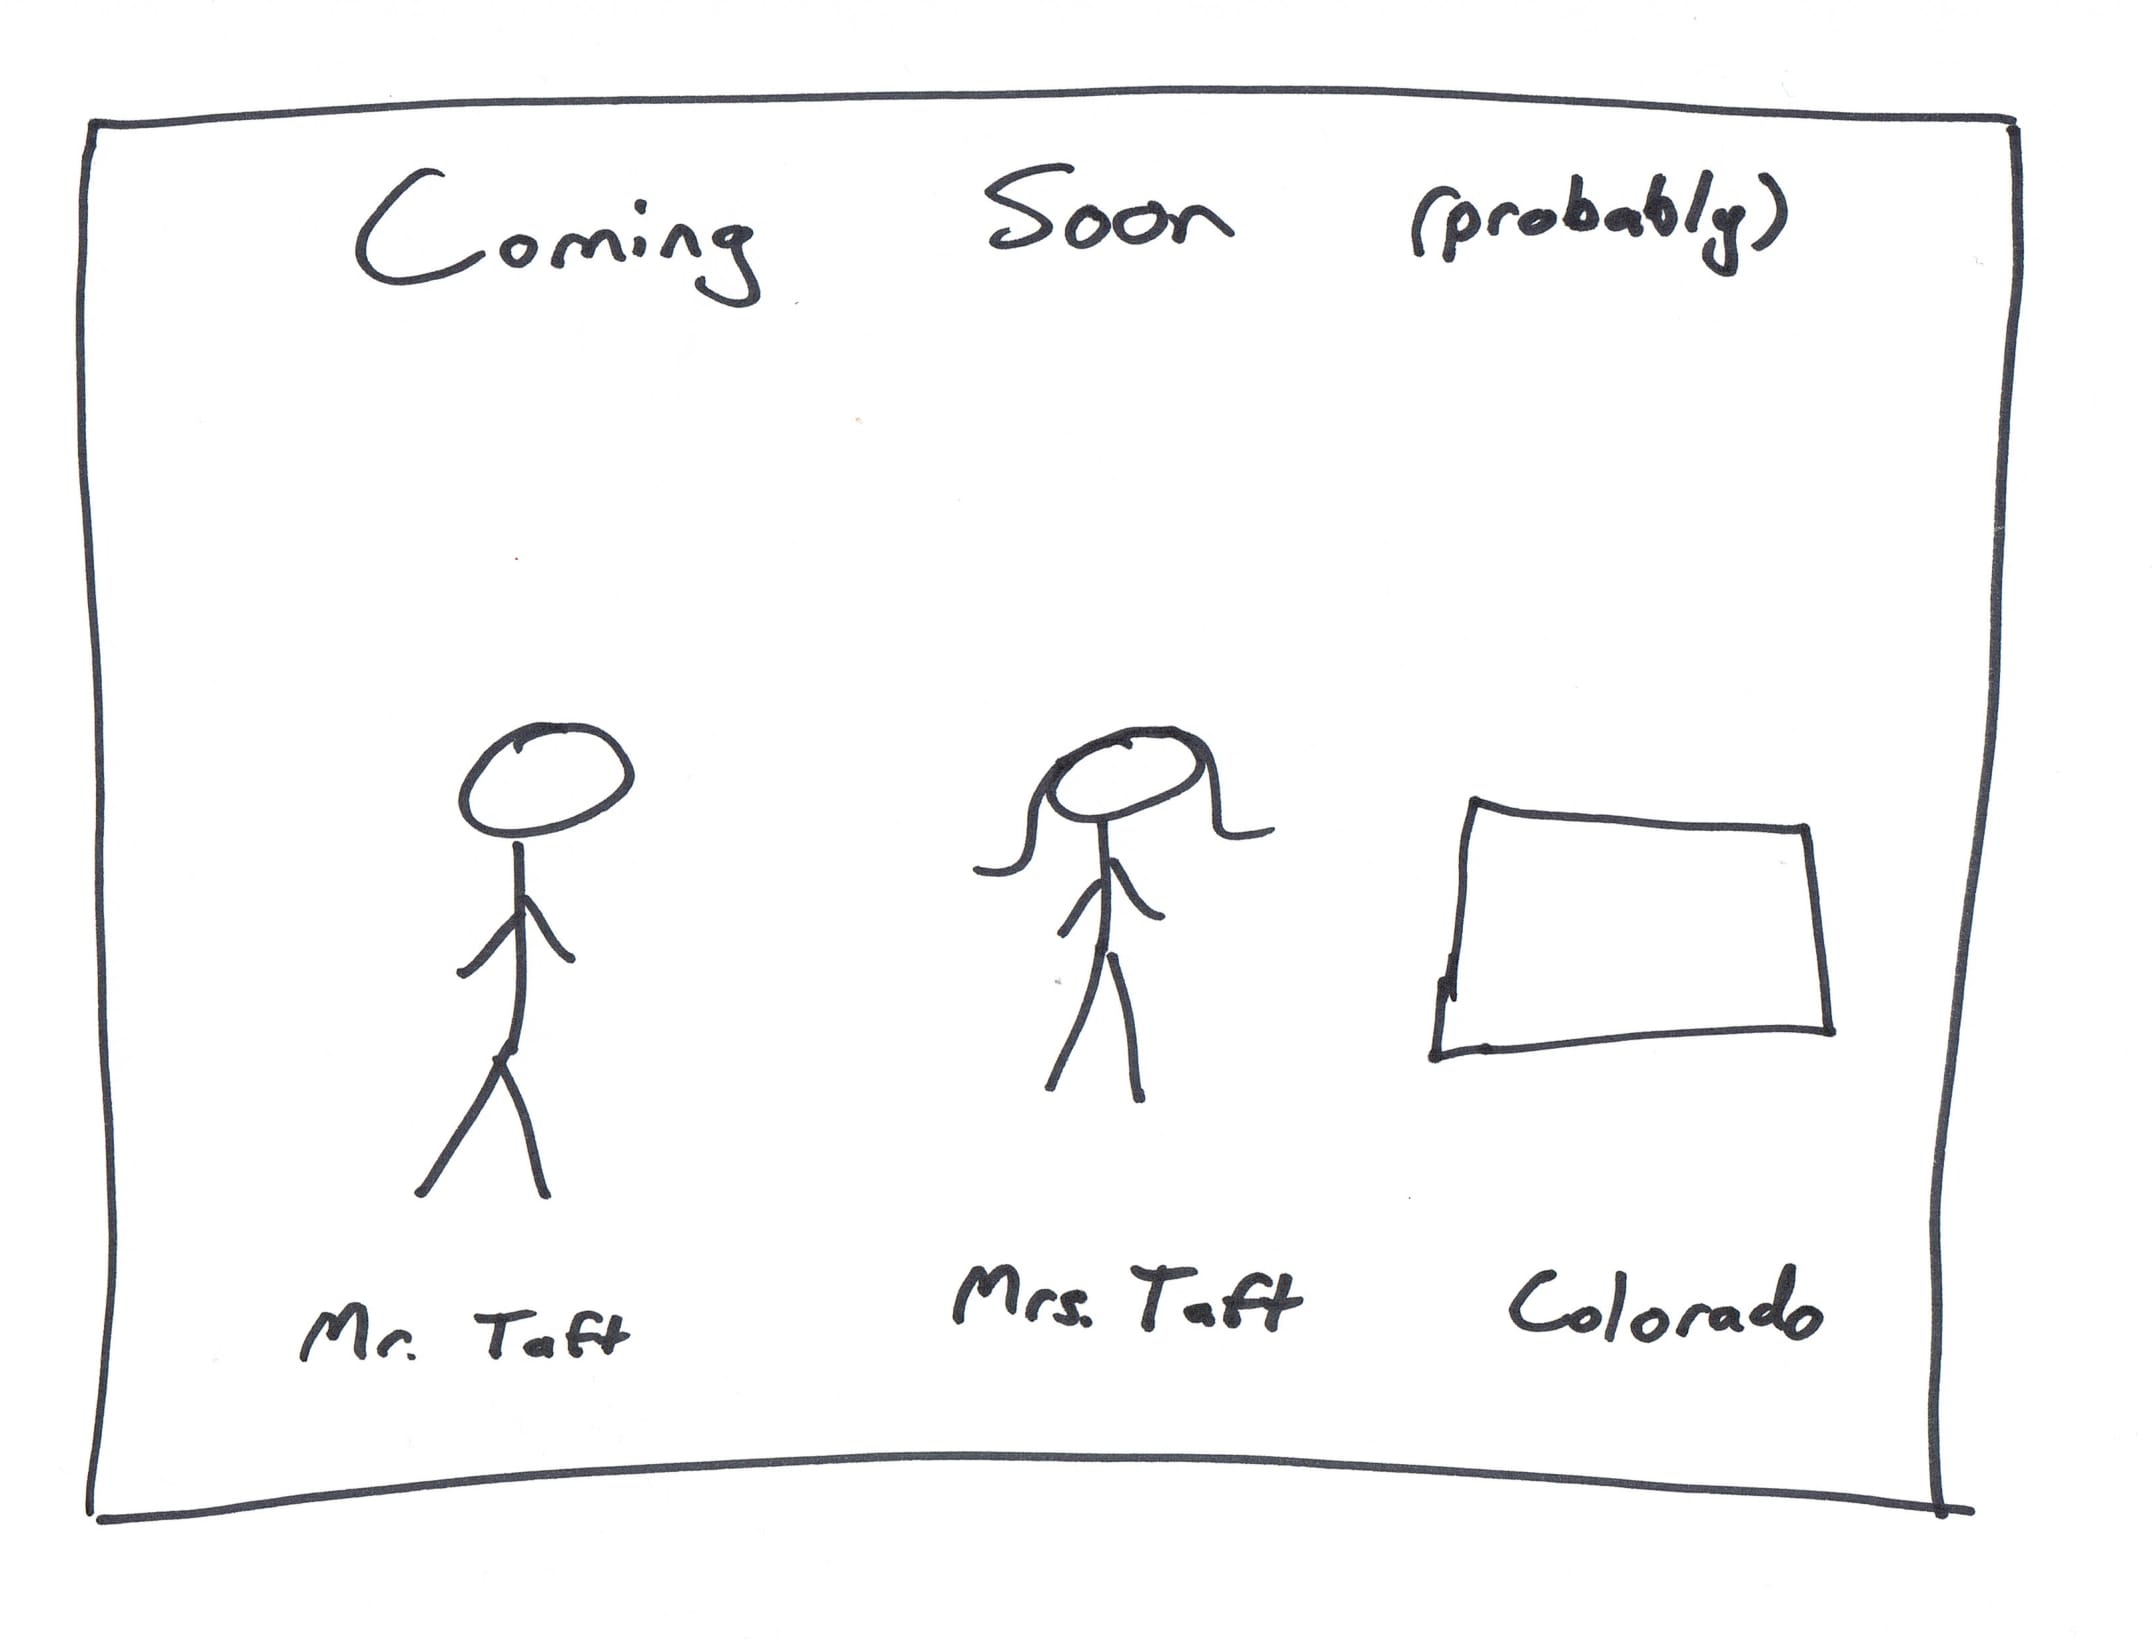 Coming Soon (probably)
Mr. Taft Mrs. Taft Colorado